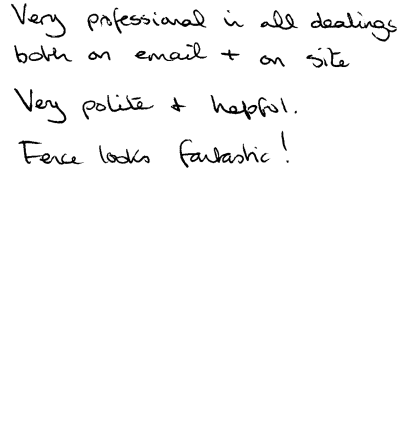 Very professional in all dealings
both on email + on site
Very polite + helpful.
Fence looks fantastic!